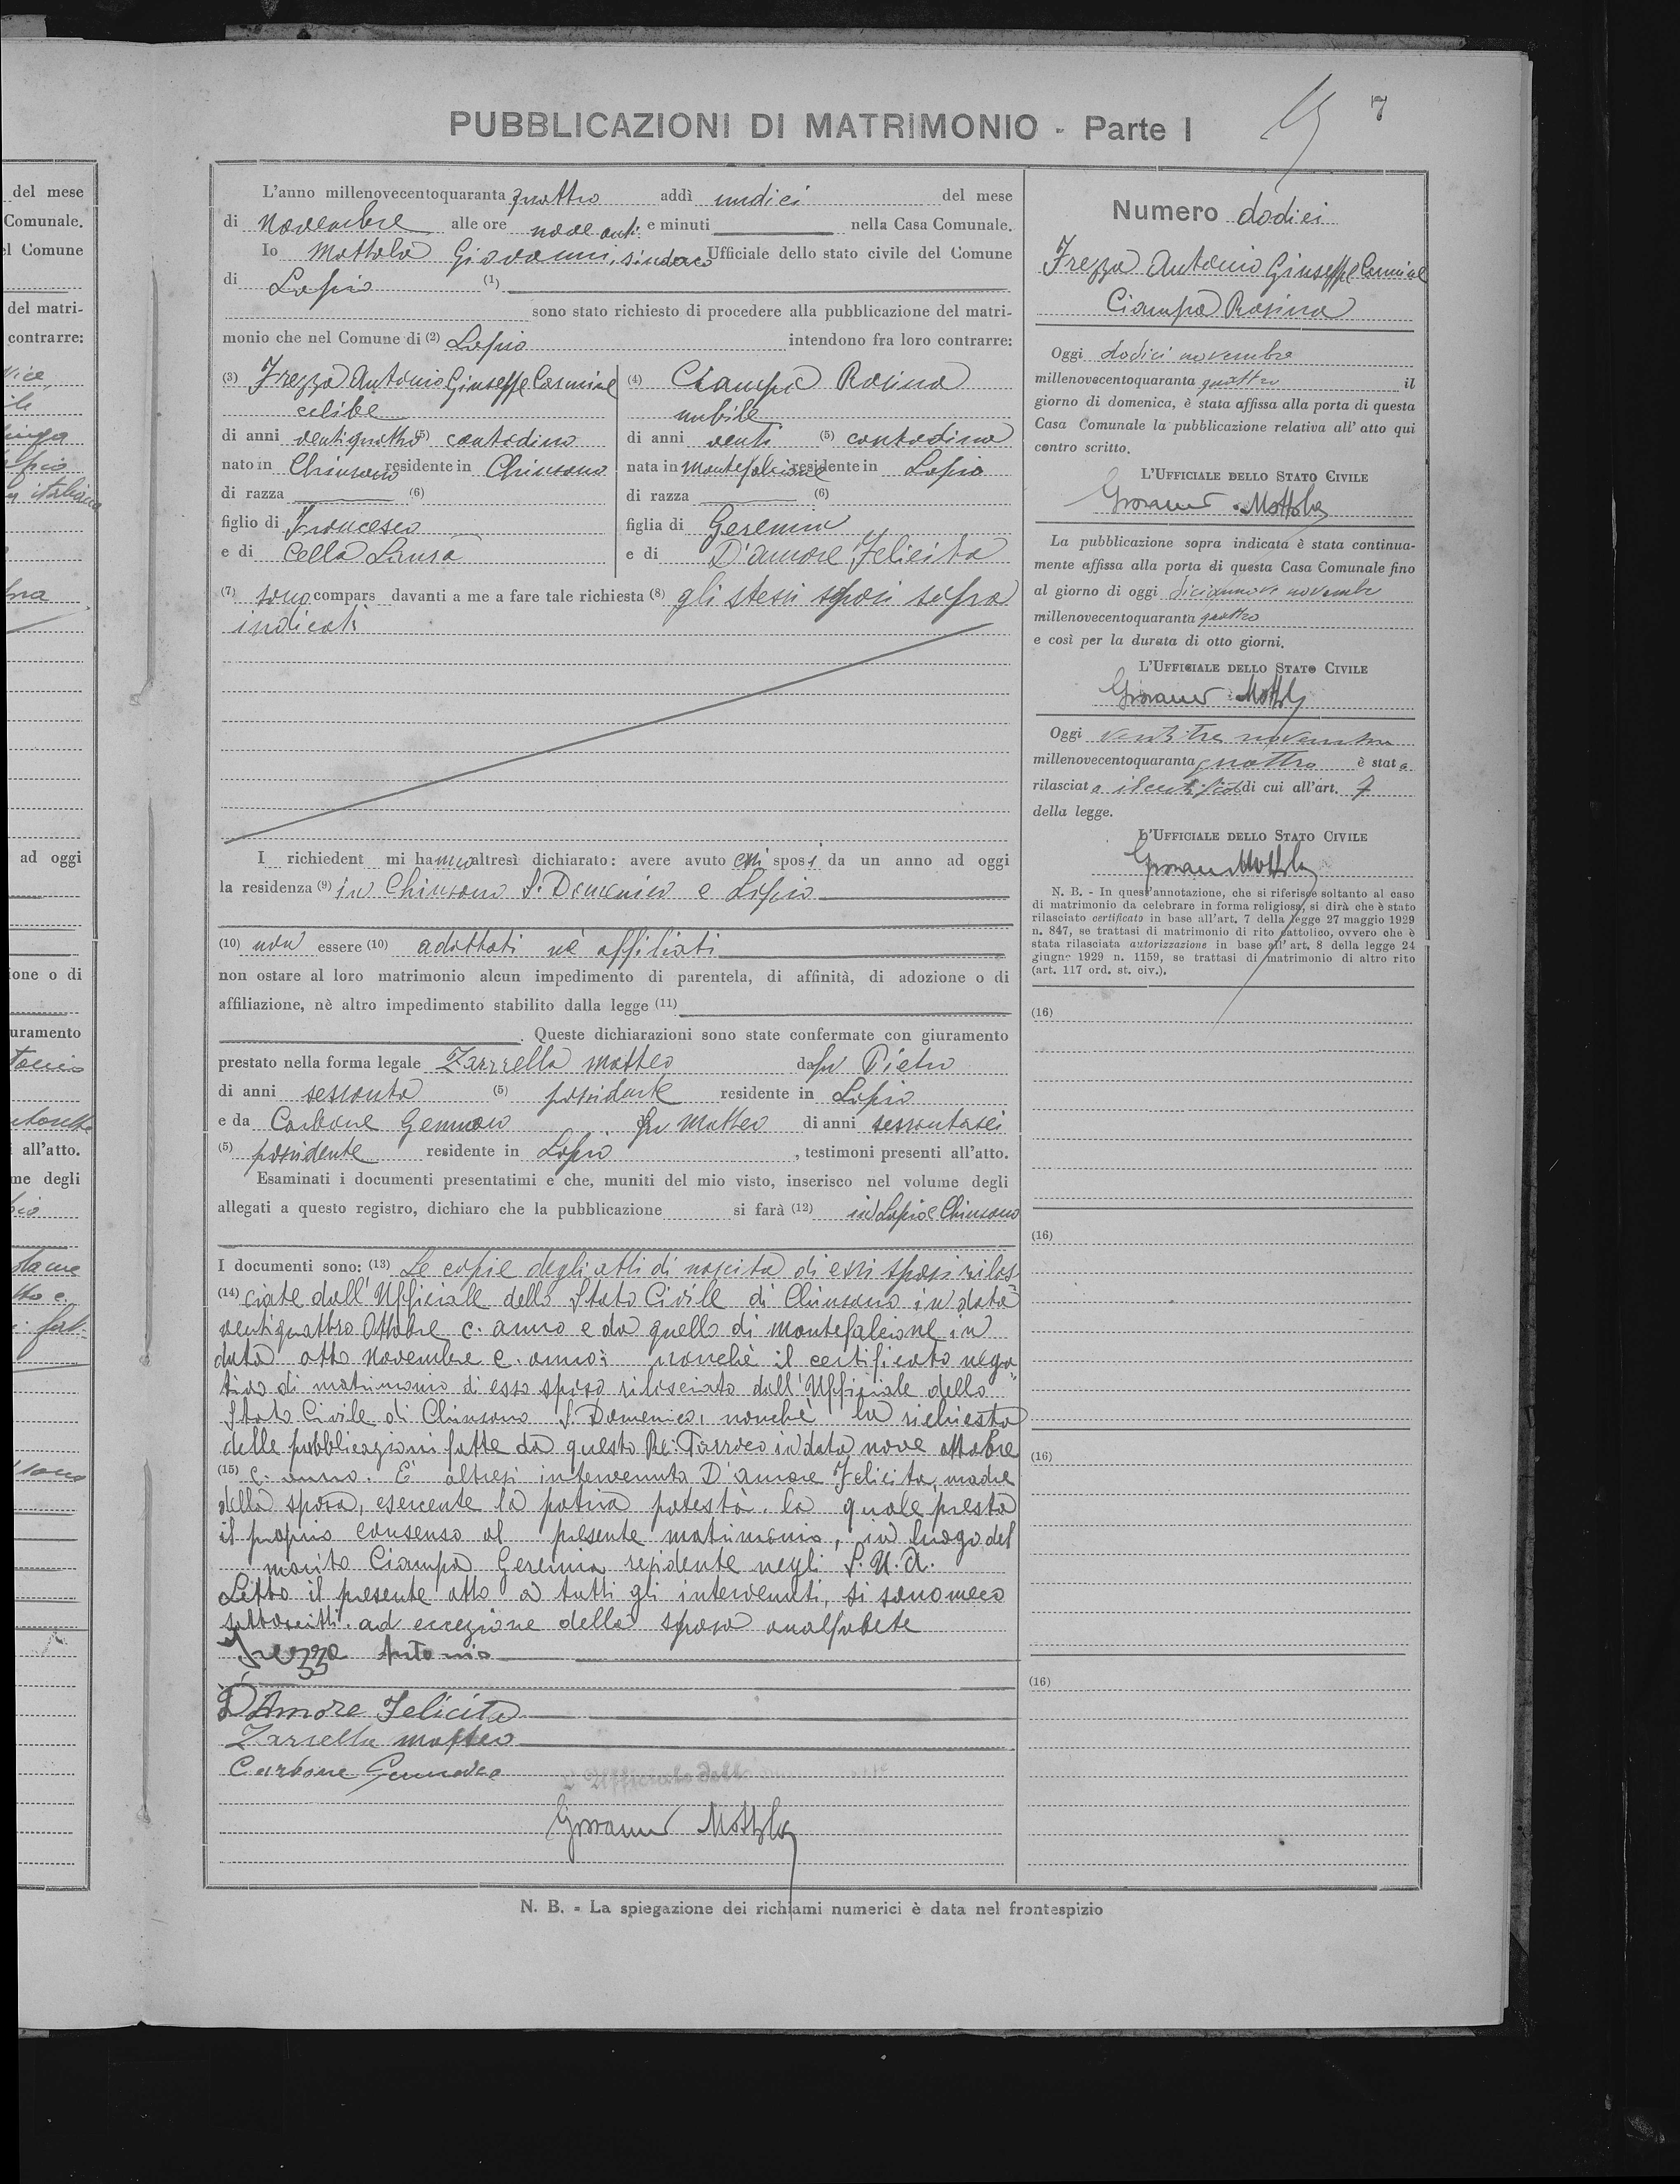 7
PUBBLICAZIONI DI MATRIMONIO - Parte I
L'anno millenovecentoquaranta quattro addì undici del mese
di Novembre alle ore nove ant. e minuti nella Casa Comunale.
Io Mottola Giovanni, sindaco Ufficiale dello stato civile del Comune
di Lapio (1)
sono stato richiesto di procedere alla pubblicazione del matri-
monio che nel Comune di (2) Lapio intendono fra loro contrarre:
(3) Frezza Antonio Giuseppe Carmine
celibe
di anni ventiquattro (5) contadino
nato in Chiusano residente in Chiusano
di razza (6)
figlio di Francesco
e di Cella Laura
(4) Ciampa Rosina
nubile
di anni venti (5) contadina
nata in Montefalcione residente in Lapio
di razza (6)
figlia di Geremia
e di D'amore Felicita
(7) sono compars davanti a me a fare tale richiesta (8) gli stessi sposi sopra
indicati
I richiedent mi hanno altresì dichiarato: avere avuto essi sposi da un anno ad oggi
la residenza (9) in Chiusano S. Domenico e Lapio
(10) non essere (10) adottati nè affiliati
non ostare al loro matrimonio alcun impedimento di parentela, di affinità, di adozione o di
affiliazione, nè altro impedimento stabilito dalla legge (11)
. Queste dichiarazioni sono state confermate con giuramento
prestato nella forma legale Zarrella Matteo da fu Pietro
di anni sessanta (5) possidente residente in Lapio
e da Carbone Gennaro fu Matteo di anni sessantasei
(5) possidente residente in Lapio , testimoni presenti all'atto.
Esaminati i documenti presentatimi e che, muniti del mio visto, inserisco nel volume degli
allegati a questo registro, dichiaro che la pubblicazione si farà (12) in Lapio e Chiusano
I documenti sono: (13) Le copie degli atti di nascita di essi sposi rilas-
(14) ciate dall'Ufficiale dello Stato Civile di Chiusano in data
ventiquattro Ottobre c. anno e da quello di Montefalcione in
data otto Novembre c. anno; nonchè il certificato nega
tivo di matrimonio di esso sposo rilasciato dall'Ufficiale dello
Stato Civile di Chiusano S. Domenico, nonchè la richiesta
delle pubblicazioni fatte da questo Re: Parroco in data nove ottobre
(15) c. anno. È altresì intervenuta D'amore Felicita, madre
della sposa, esercente la patria potestà. la quale presta
il proprio consenso al presente matrimonio, in luogo del
marito Ciampa Geremia residente negli S. U. A.
Letto il presente atto a tutti gli intervenuti, si sono meco
sottoscritti. ad eccezione della sposa analfabete
Frezza Antonio
D'Amore Felicita
Zarrella Matteo
Carbone Gennaro
L'Ufficiale dello
Giovanni Mottola
Numero dodici
Frezza Antonio Giuseppe Carmine
Ciampa Rosina
Oggi dodici novembre
millenovecentoquaranta quattro il
giorno di domenica, è stata affissa alla porta di questa
Casa Comunale la pubblicazione relativa all' atto qui
contro scritto.
L'UFFICIALE DELLO STATO CIVILE
Giovanni Mottola
La pubblicazione sopra indicata è stata continua-
mente affissa alla porta di questa Casa Comunale fino
al giorno di oggi diciannove novembre
millenovecentoquaranta quattro
e così per la durata di otto giorni.
L'UFFICIALE DELLO STATO CIVILE
Giovanni Mottola
Oggi ventitre novembre
millenovecentoquaranta quattro è stato
rilasciato il certificato di cui all'art. 7
della legge.
L'UFFICIALE DELLO STATO CIVILE
Giovanni Mottola
N. B. - In quest'annotazione, che si riferisce soltanto al caso
di matrimonio da celebrare in forma religiosa, si dirà che è stato
rilasciato certificato in base all'art. 7 della legge 27 maggio 1929
n. 847, se trattasi di matrimonio di rito cattolico, ovvero che è
stata rilasciata autorizzazione in base all'art. 8 della legge 24
giugno 1929 n. 1159, se trattasi di matrimonio di altro rito
(art. 117 ord. st. civ.).
(16)
(16)
(16)
(16)
N. B. - La spiegazione dei richiami numerici è data nel frontespizio